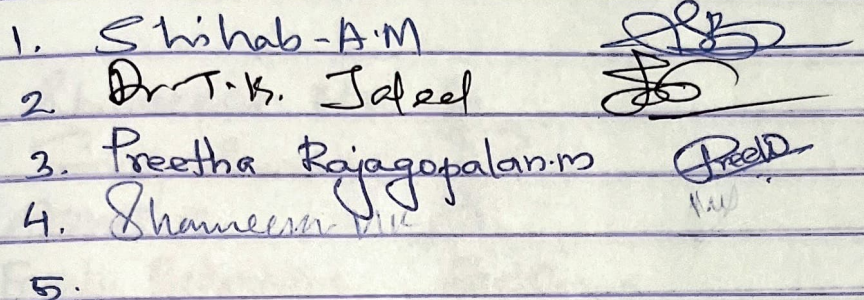 1. Shihab-A.M
2 Dr T.K. Jaleel
3. Preetha Rajagopalan.m Preetha
4. Shameem
5.